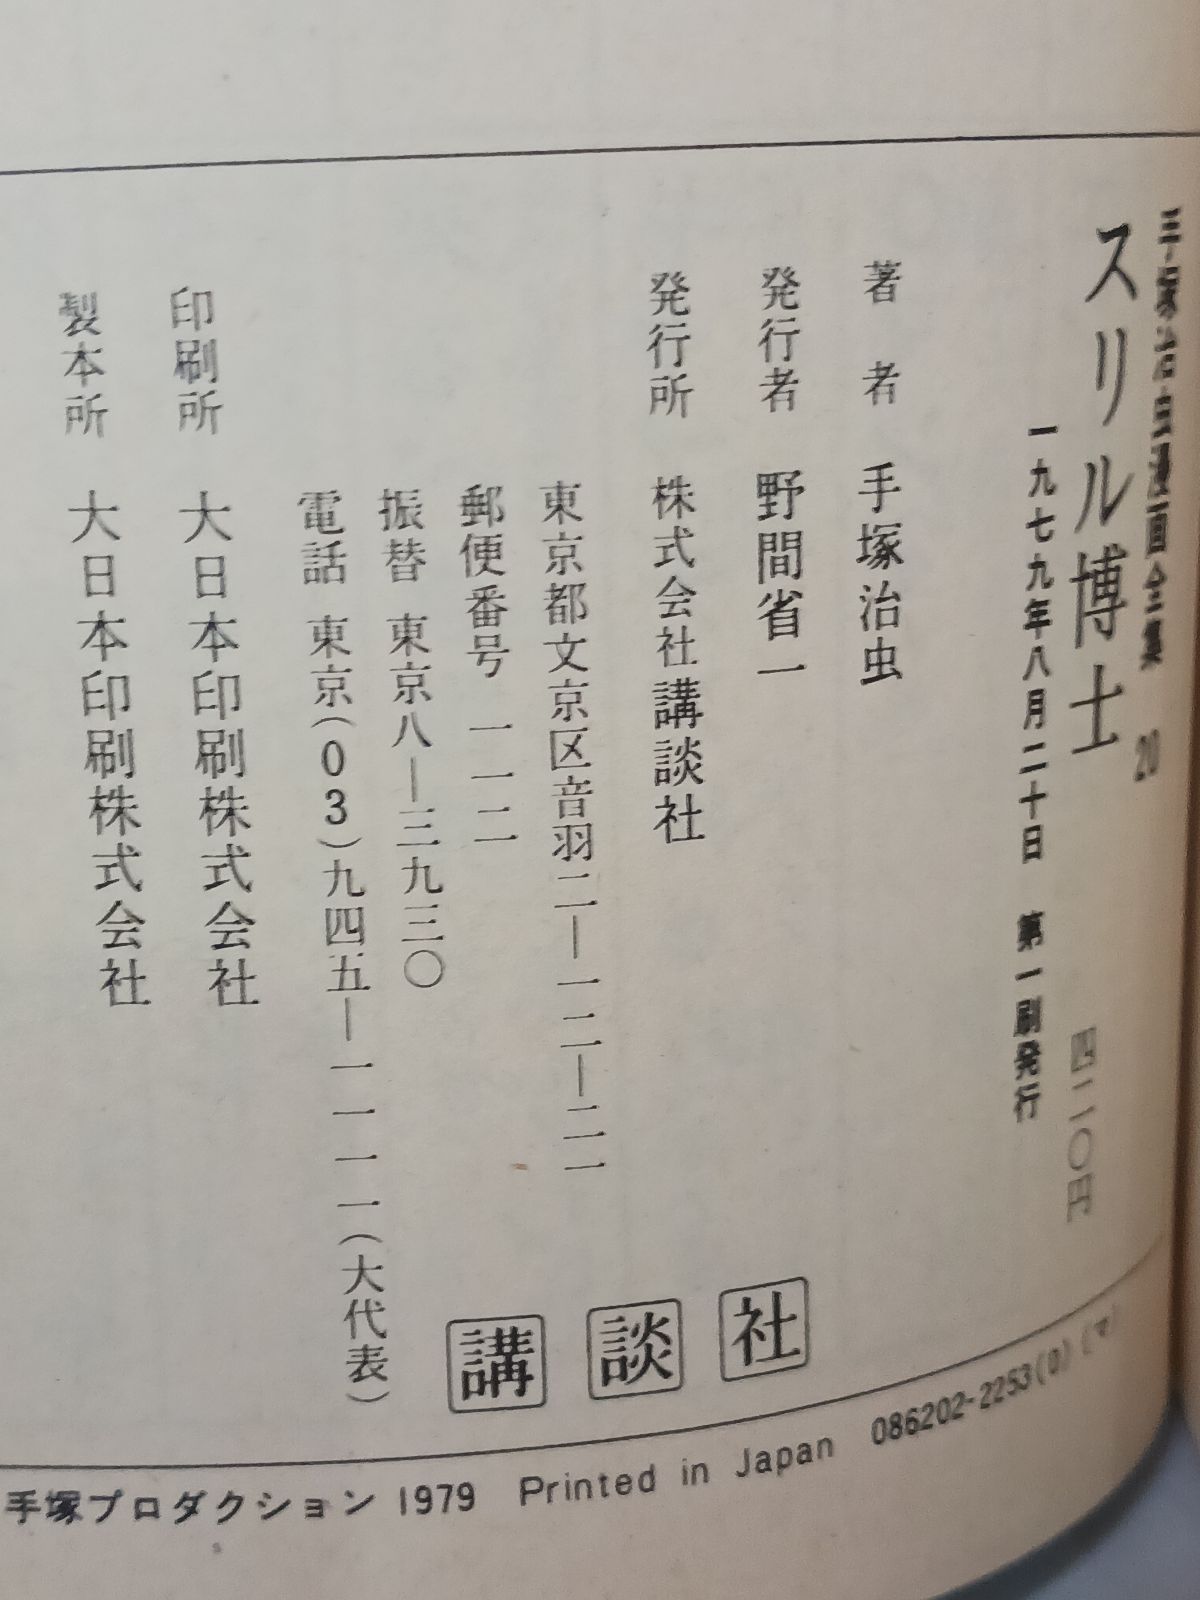 手塚治虫漫画全集 20
スリル博士
四二〇円
一九七九年八月二十日 第一刷発行
著者 手塚治虫
発行者 野間省一
発行所 株式会社講談社
東京都文京区音羽二―一二―二一
郵便番号 一一二
振替 東京八―三九三〇
電話 東京(03)九四五―一一一一(大代表)
印刷所 大日本印刷株式会社
製本所 大日本印刷株式会社
講談社
手塚プロダクション 1979 Printed in Japan 086202-2253(0)(マ)